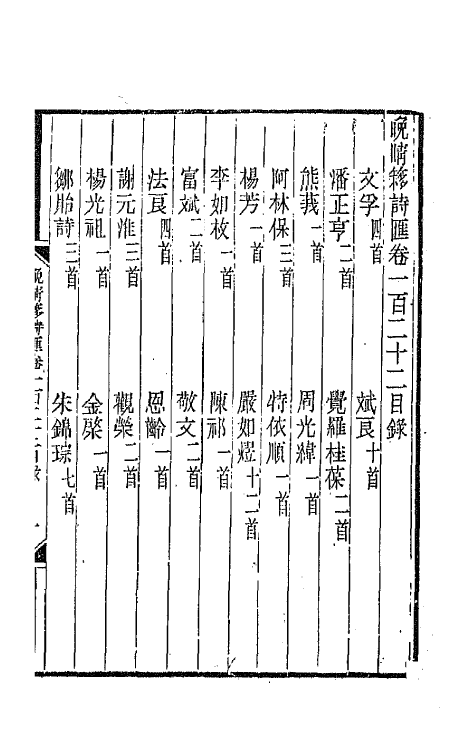 晚晴簃詩匯卷一百二十二目錄
文孚四首　斌良十首
潘正亨二首　覺羅桂葆二首
熊莪一首　周光緯一首
阿林保三首　特依順一首
楊芳一首　嚴如熤十二首
李如枚一首　陳祁一首
富斌二首　敬文二首
法良四首　恩齡一首
謝元淮三首　觀榮二首
楊光祖一首　金棨一首
鄒貽詩三首　朱錦琮七首
晚晴簃詩匯卷一百二十二目錄　一